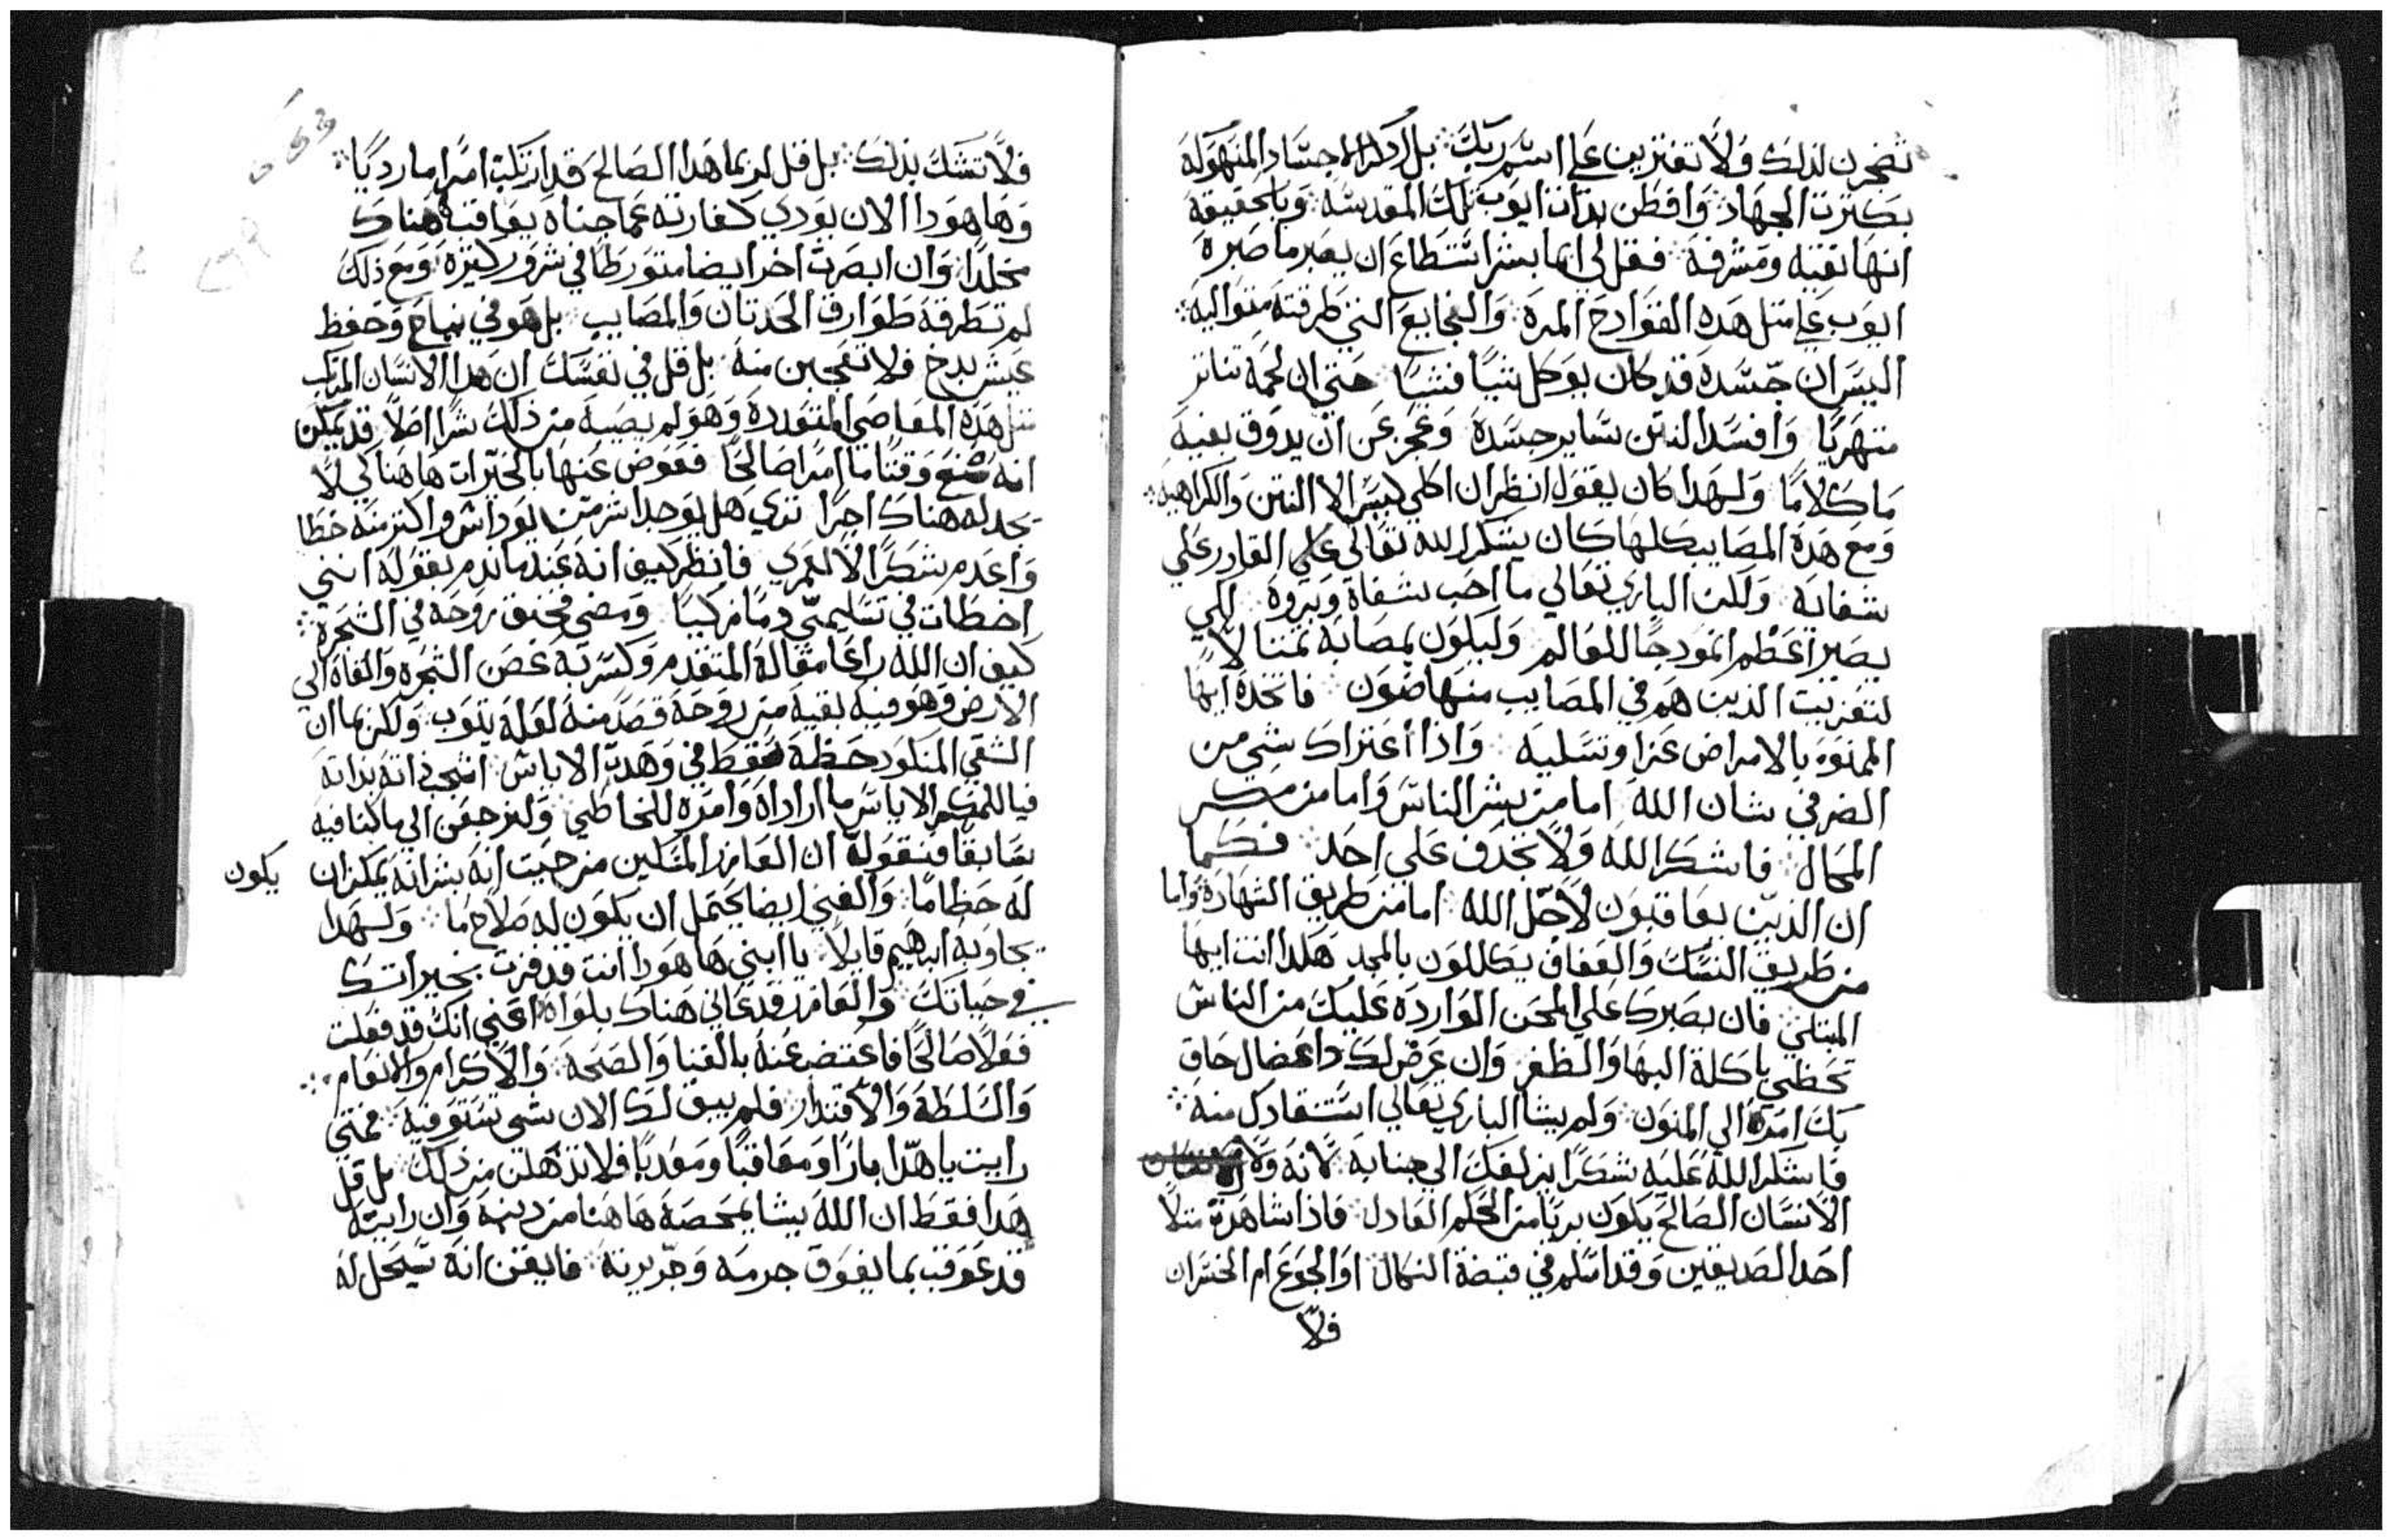 تضجرن لذلك ولا تفترين علي اسم ربك بل اذكر الاجساد المنهوكه
بكثرت الجهاد وافطن بذات ايوب تلك المقدسه وبالحقيقه
انها نقيه ومشرفه فقل لي ايما بشر استطاع ان يصبر ما صبره
ايوب علي متل هده الفوادح المره والفجايع التي طرقته متواليه
اليس ان جسده قد كان يوكل شيا فشيا حتي ان لحمه تناتر
متهريا وافسد النتن ساير جسده وعجز عن ان يدوق بفيه
ما كلاما ولهدا كان يقول انظر ان اكلي ليس الا النتن والكراهيه
ومع هده المصايب كلها كان يشكر الله تعالي علي القادر علي
شفايه ولكن الباري تعالي ما احب شفاه وبروه لكي
يصير اعظم انمودجا للعالم وليكون بمصابه تمتالا
لتعزيت الذين هم في المصايب منهاضون فاتخده ايها
الممنوه بالامراض عزا وتسليه واذا اعتراك شي من
الضر في شان الله اما من بشر الناس واما من مكر
المحال فاشكر الله ولا تجدف علي احد فكما
ان الذين يعاقبون لاجل الله اما من طريق الشهاده واما
من طريق النسك والعفاف يكللون بالمجد هكدا انت ايها
المبتلي فان بصبرك علي المحن الوارده عليك من الناس
تحظي باكلة البها والظفر وان عرض لك دا عضال حاق
بك امره الي المنون ولم يشا الباري تعالي استنقادك منه
فاشكر الله عليه شكرا يزلفك الي جنابه لانه ولا
الانسان الصالح يكون بريا من الحكم العادل فاذا شاهدة متلا
احد الصديقين وقد اسلم في قبضة النكال او الجوع ام الخسران
فلا
فلا تشك بذلك بل قل لربما هدا الصالح قد ارتكب امرا ما رديا
وها هودا الان يودي كفارته عما جناه يعاقبه هناك
مخلدا وان ابصرت اخر ايضا متورطا في شرور كتيره ومع ذلك
لم تطرقه طوارق الحدتان والمصايب بل هو في نجاح وحفظ
عيش بدخ فلا تعجبن منه بل قل في نفسك ان هدا الانسان المرتكب
متل هده المعاصي المتعدده وهو لم يصيبه من ذلك شرا اصلا قد يمكن
انه صنع وقتا ما امرا صالحا فعوض عنها بالخيرات هاهنا كي لا
يجد له هناك اجرا تري هل يوجد اشر من يوداس واكتر منه خطا
واعدم شكرا لا لعمري فانظر كيف انه عندما ندم بقوله انني
اخطات في تسليمي دما زكيا ومضي فخنق روحه في الشجره
كيف ان الله راعا مقاله المتقدم وكسر به غصن الشجره والقاه الي
الارض وهو فيه بقية من روحه قصد منه لعله يتوب ولكن بما ان
الشقي المنكود حظه سقط في وهدت الاياس انتحي ذاته بداته
فيا للمكر الاياس ما ارداه وامره للخاطي ولنرجعن الي ما كنا فيه
سابقا فنقول ان العازر المسكين من حيت انه بشر انه يمكن ان يكون
له خطا ما والغني ايضا يحتمل ان يكون له صلاح ما ولهدا
يجاوبه ابرهيم قايلا يا ابني ها هودا انت قد فزت بخيراتك
في حياتك والعازر قد عاني هناك بلواه اعني انك قد فعلت
فعلا صالحا فاعتضت عنه بالغنا والصحه والاكرام والانعام
والسلطة والاقتدار فلم يبق لك الان شي تستوفيه فمتي
رايت يا هدا بارا ومعاقبا ومعدبا فلا تذهلن من ذلك بل قل
هدا فقط ان الله يشا يمحصه هاهنا من دينه وان رايته
قد عوقب بما يفوق جرمه وجريرته فايقن انه سيحل له